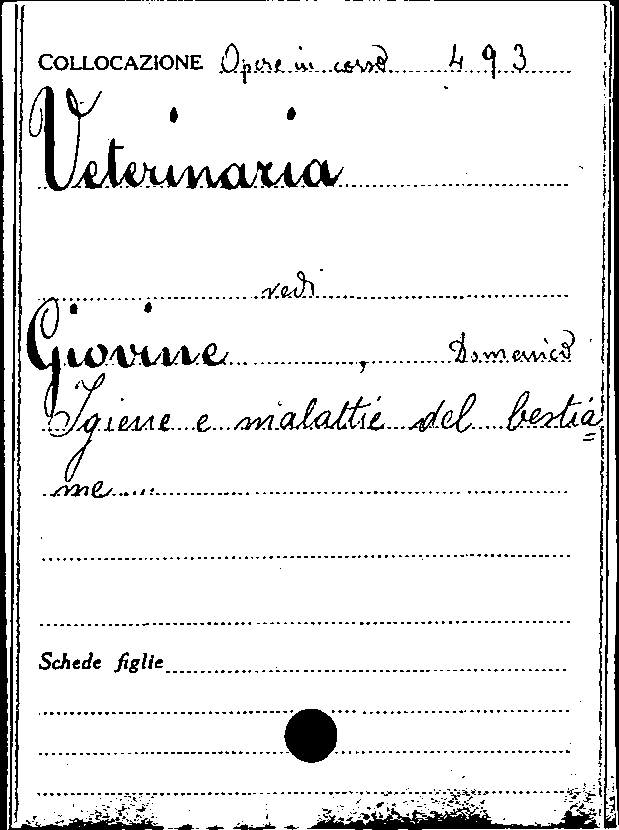 COLLOCAZIONE Opere in corso 493
Veterinaria
vedi
Giovine, Domenico
Igiene e malattie del bestia=
me....
Schede figlie